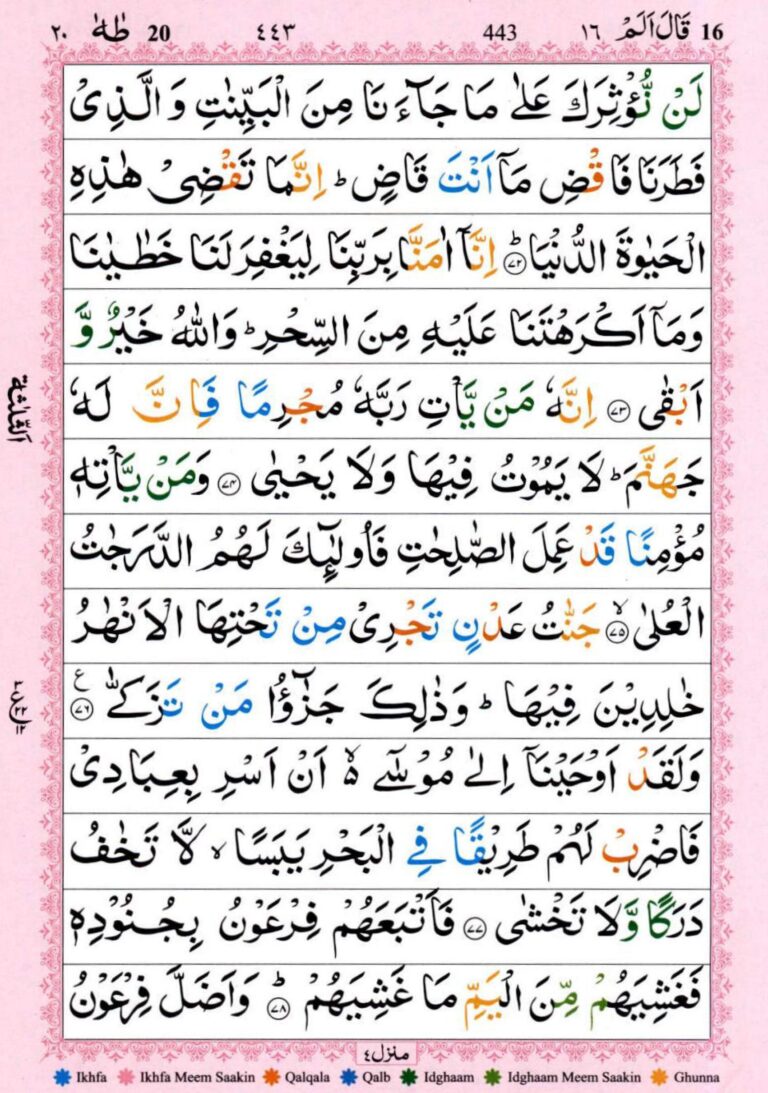 ٢٠ طٰهٰ 20 ٤٤٣ 443 ١٦ قَالَ اَلَمْ 16
لَنْ نُّؤْثِرَكَ عَلٰى مَا جَآءَنَا مِنَ الْبَيِّنٰتِ وَالَّذِىْ
فَطَرَنَا فَاقْضِ مَآ اَنْتَ قَاضٍ ؕ اِنَّمَا تَقْضِىْ هٰذِهِ
الْحَيٰوةَ الدُّنْيَا ؕ ﴿۷۲﴾ اِنَّآ اٰمَنَّا بِرَبِّنَا لِيَغْفِرَ لَنَا خَطٰيٰنَا
وَمَآ اَكْرَهْتَنَا عَلَيْهِ مِنَ السِّحْرِ ؕ وَاللّٰهُ خَيْرٌ وَّ
اَبْقٰى ﴿۷۳﴾ اِنَّهٗ مَنْ يَّاْتِ رَبَّهٗ مُجْرِمًا فَاِنَّ لَهٗ
جَهَنَّمَ ؕ لَا يَمُوْتُ فِيْهَا وَلَا يَحْيٰى ﴿۷۴﴾ وَمَنْ يَّاْتِهٖ
مُؤْمِنًا قَدْ عَمِلَ الصّٰلِحٰتِ فَاُولٰٓئِكَ لَهُمُ الدَّرَجٰتُ
الْعُلٰى ۙ ﴿۷۵﴾ جَنّٰتُ عَدْنٍ تَجْرِىْ مِنْ تَحْتِهَا الْاَنْهٰرُ
خٰلِدِيْنَ فِيْهَا ؕ وَذٰلِكَ جَزٰٓؤُا مَنْ تَزَكّٰى ﴿۷۶﴾ ع
وَلَقَدْ اَوْحَيْنَآ اِلٰى مُوْسٰٓى ۙ اَنْ اَسْرِ بِعِبَادِىْ
فَاضْرِبْ لَهُمْ طَرِيْقًا فِى الْبَحْرِ يَبَسًا ۙ لَّا تَخٰفُ
دَرَكًا وَّلَا تَخْشٰى ﴿۷۷﴾ فَاَتْبَعَهُمْ فِرْعَوْنُ بِجُنُوْدِهٖ
فَغَشِيَهُمْ مِّنَ الْيَمِّ مَا غَشِيَهُمْ ؕ ﴿۷۸﴾ وَاَضَلَّ فِرْعَوْنُ
اَلثَّلٰثَةُ
منزل ٤
Ikhfa Ikhfa Meem Saakin Qalqala Qalb Idghaam Idghaam Meem Saakin Ghunna